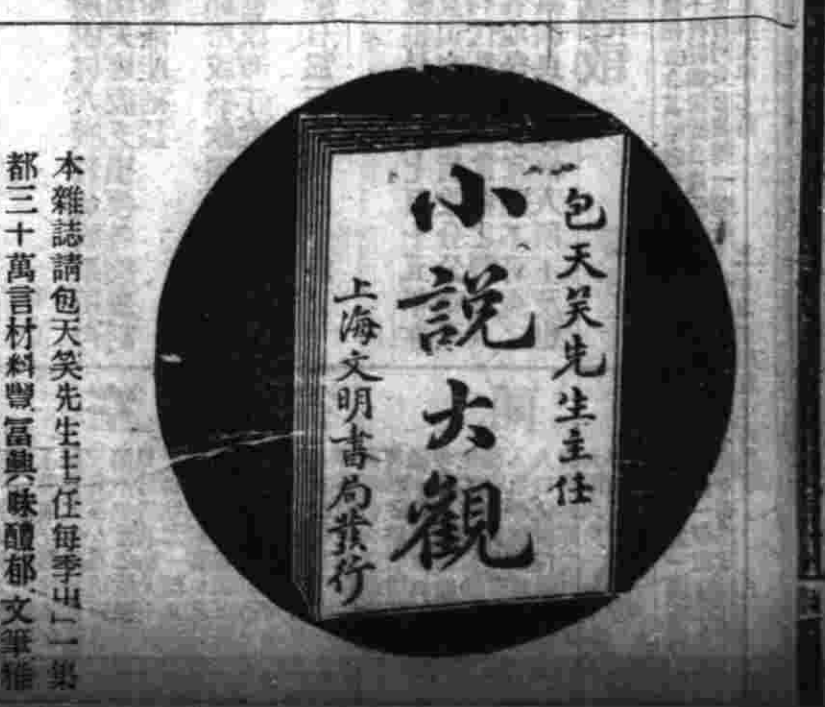 包天笑先生主任
小説大觀
上海文明書局發行
本雜誌請包天笑先生主任每季出一集
都三十萬言材料豐富興味醲郁文筆雅